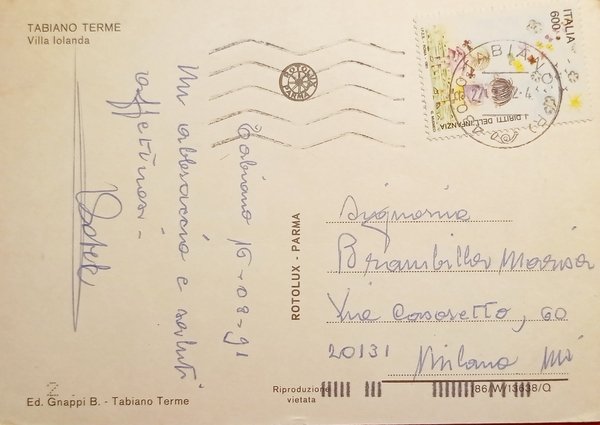 TABIANO TERME
Villa Iolanda
ITALIA
600
I DIRITTI DELL'INFANZIA
TABIANO
ROTOLUX
PARMA
Tabiano 16-08-91
Un abbraccio e saluti
affettuosi -
ROTOLUX - PARMA
Signorina
Brambilla Marisa
Via Casoretto, 60
20131 Milano Mi
Riproduzione
vietata
86/W/13638/Q
2
Ed. Gnappi B. - Tabiano Terme